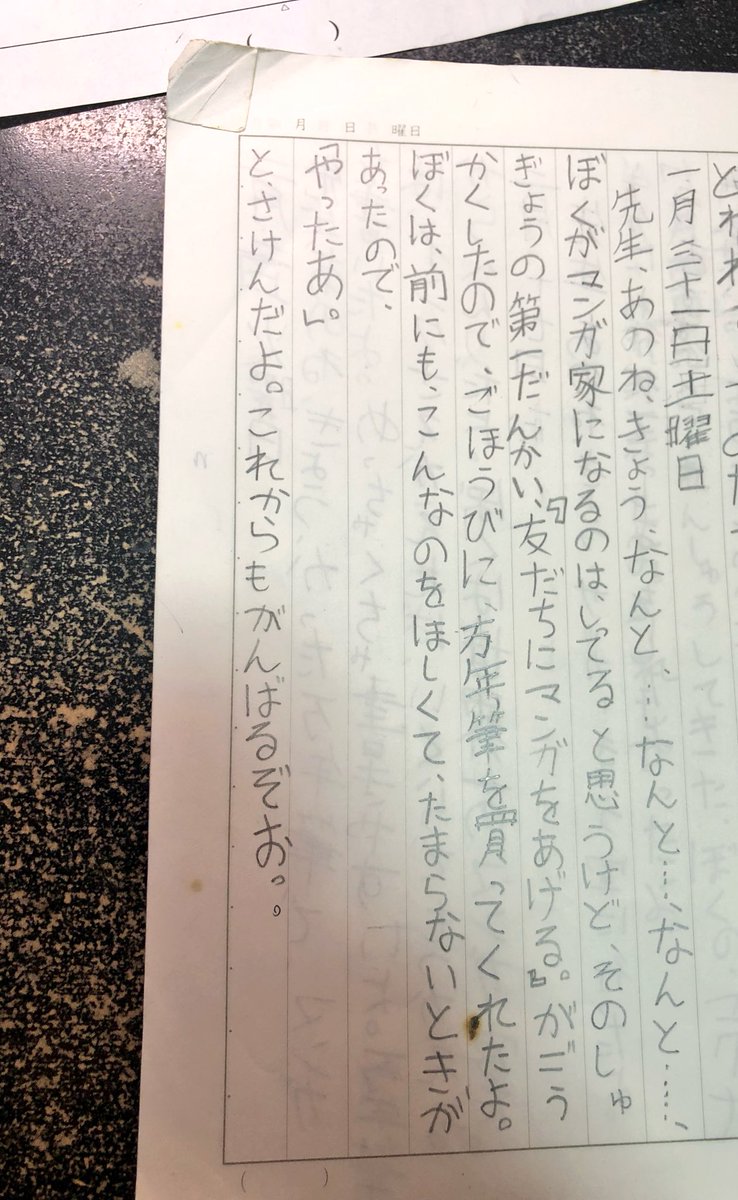 一月三十一日土曜日
先生、あのね、きょう、なんと、…なんと……、なんと……、
ぼくがマンガ家になるのは、してると思うけど、そのしゅ
ぎょうの第一だんかい、『友だちにマンガをあげる。』がごう
かくしたので、ごほうびに、万年筆を買ってくれたよ。
ぼくは、前にも、こんなのをほしくて、たまらないときが
あったので、
「やったあ。」
と、さけんだよ。これからもがんばるぞお。。
月 日 曜日
( )
( )